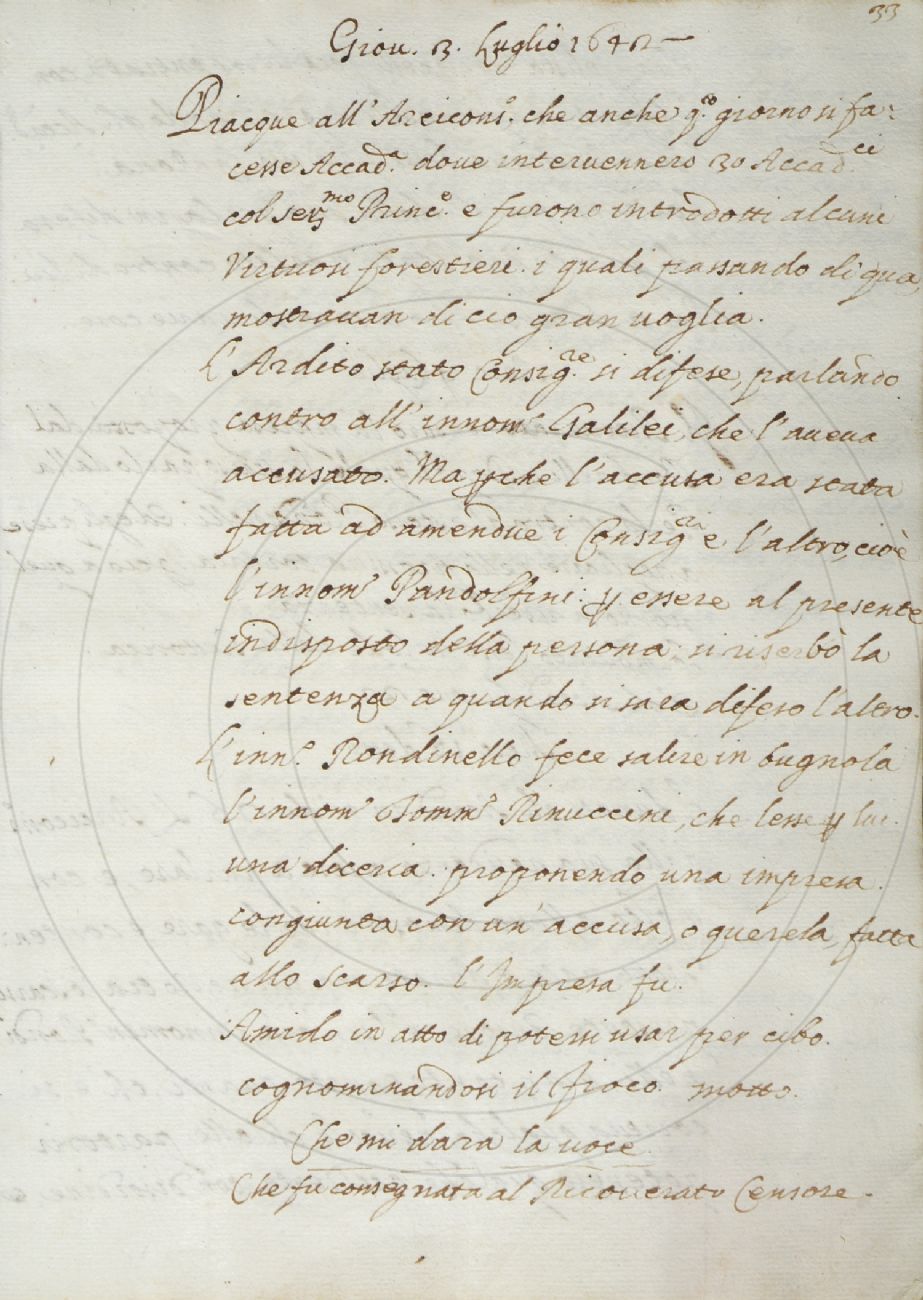 33
Giou. 3. Luglio 1642
Piacque all'Arcicons.o che anche q.to giorno si fa=
cesse Accad.a doue interuennero 30 Accad.ci
col ser.mo Princ.e e furono introdotti alcuni
Virtuosi forestieri. i quali passando di qua,
mostrauan di cio gran uoglia.
L'Ardito stato Consig.re si difese, parlando
contro all'innom.o Galilei, che l'aueua
accusato. Ma perche l'accusa era stata
fatta ad amendue i Consig.ri e l'altro, cioè
l'innom.o Pandolfini: per essere al presente
indisposto della persona; si riserbò la
sentenza a quando si sara difeso l'altro.
L'inn.o Rondinello fece salire in bugnola
l'innom.o Tomm.o Rinuccini, che lesse per lui
una diceria. proponendo una impresa.
congiunta con un'accusa, o querela, fatta
allo Scarso. l'Impresa fu.
Amido in atto di potersi usar per cibo.
cognominandosi il fioco. motto.
Che mi dara la uoce
Che fu consegnata al Ricouerato Censore.